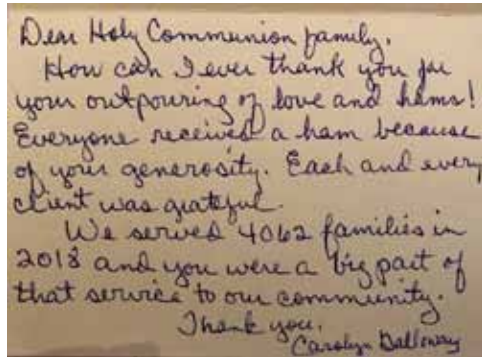 Dear Holy Communion family,
How can I ever thank you for
your outpouring of love and hams!
Everyone received a ham because
of your generosity. Each and every
client was grateful.
We served 4062 families in
2018 and you were a big part of
that service to our community.
Thank you,
Carolyn Dalloway